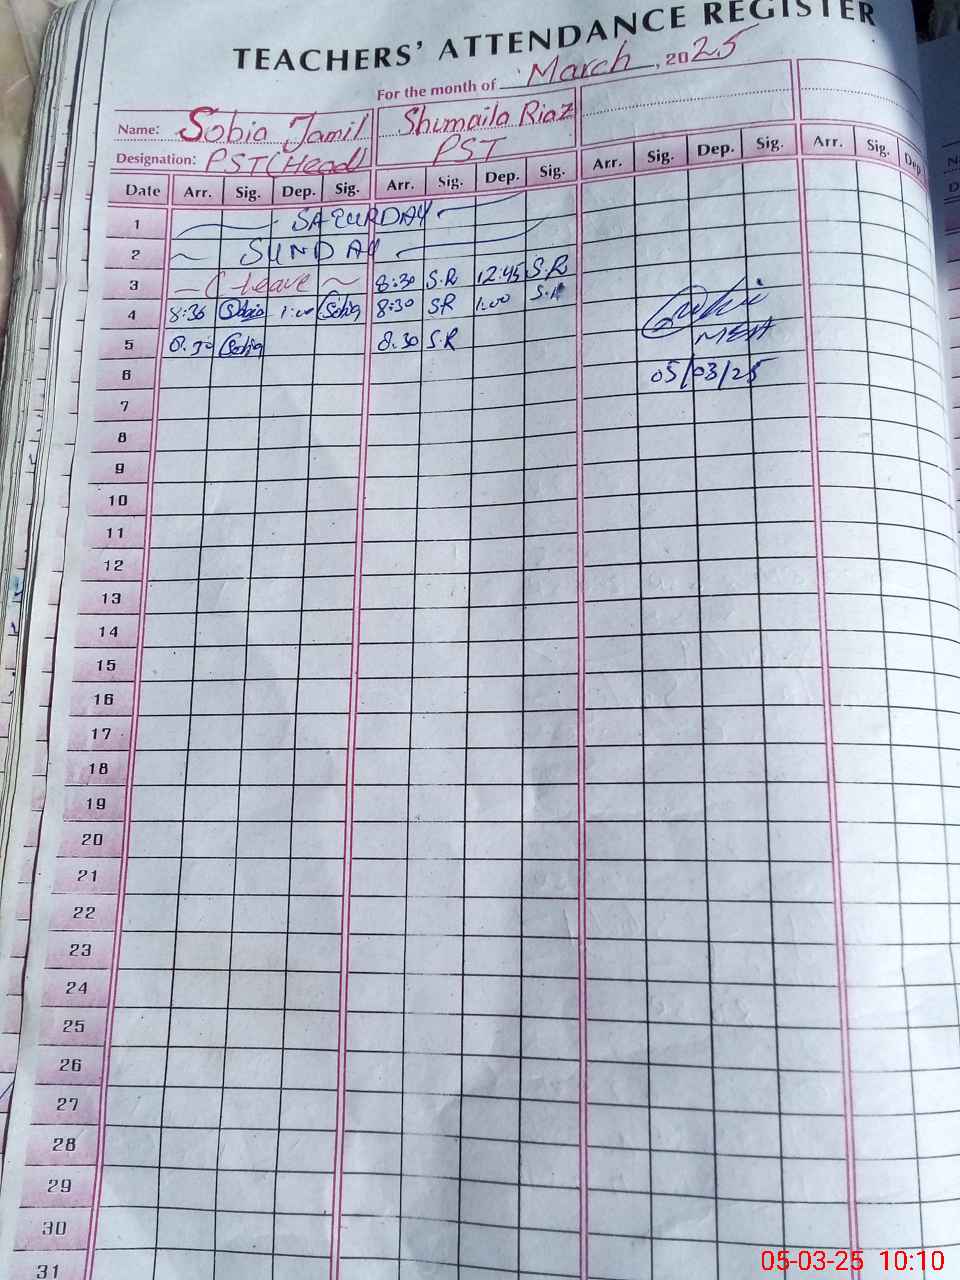 TEACHERS' ATTENDANCE REGISTER
For the month of March, 2025
Name: Sobia Jamil Shumaila Riaz
Designation: PST (Head) PST
Date Arr. Sig. Dep. Sig. Arr. Sig. Dep. Sig. Arr. Sig. Dep. Sig. Arr. Sig. Dep
1 SATURDAY
2 SUNDAY
3 Leave 8:30 S.R 12:45 S.R
4 8:30 Sobia 1:00 Sobia 8:30 SR 1:00 S.R
5 8.30 Sobia 8.30 S.R
MEA
6 05/03/25
7
8
9
10
11
12
13
14
15
16
17
18
19
20
21
22
23
24
25
26
27
28
29
30
31
05-03-25 10:10